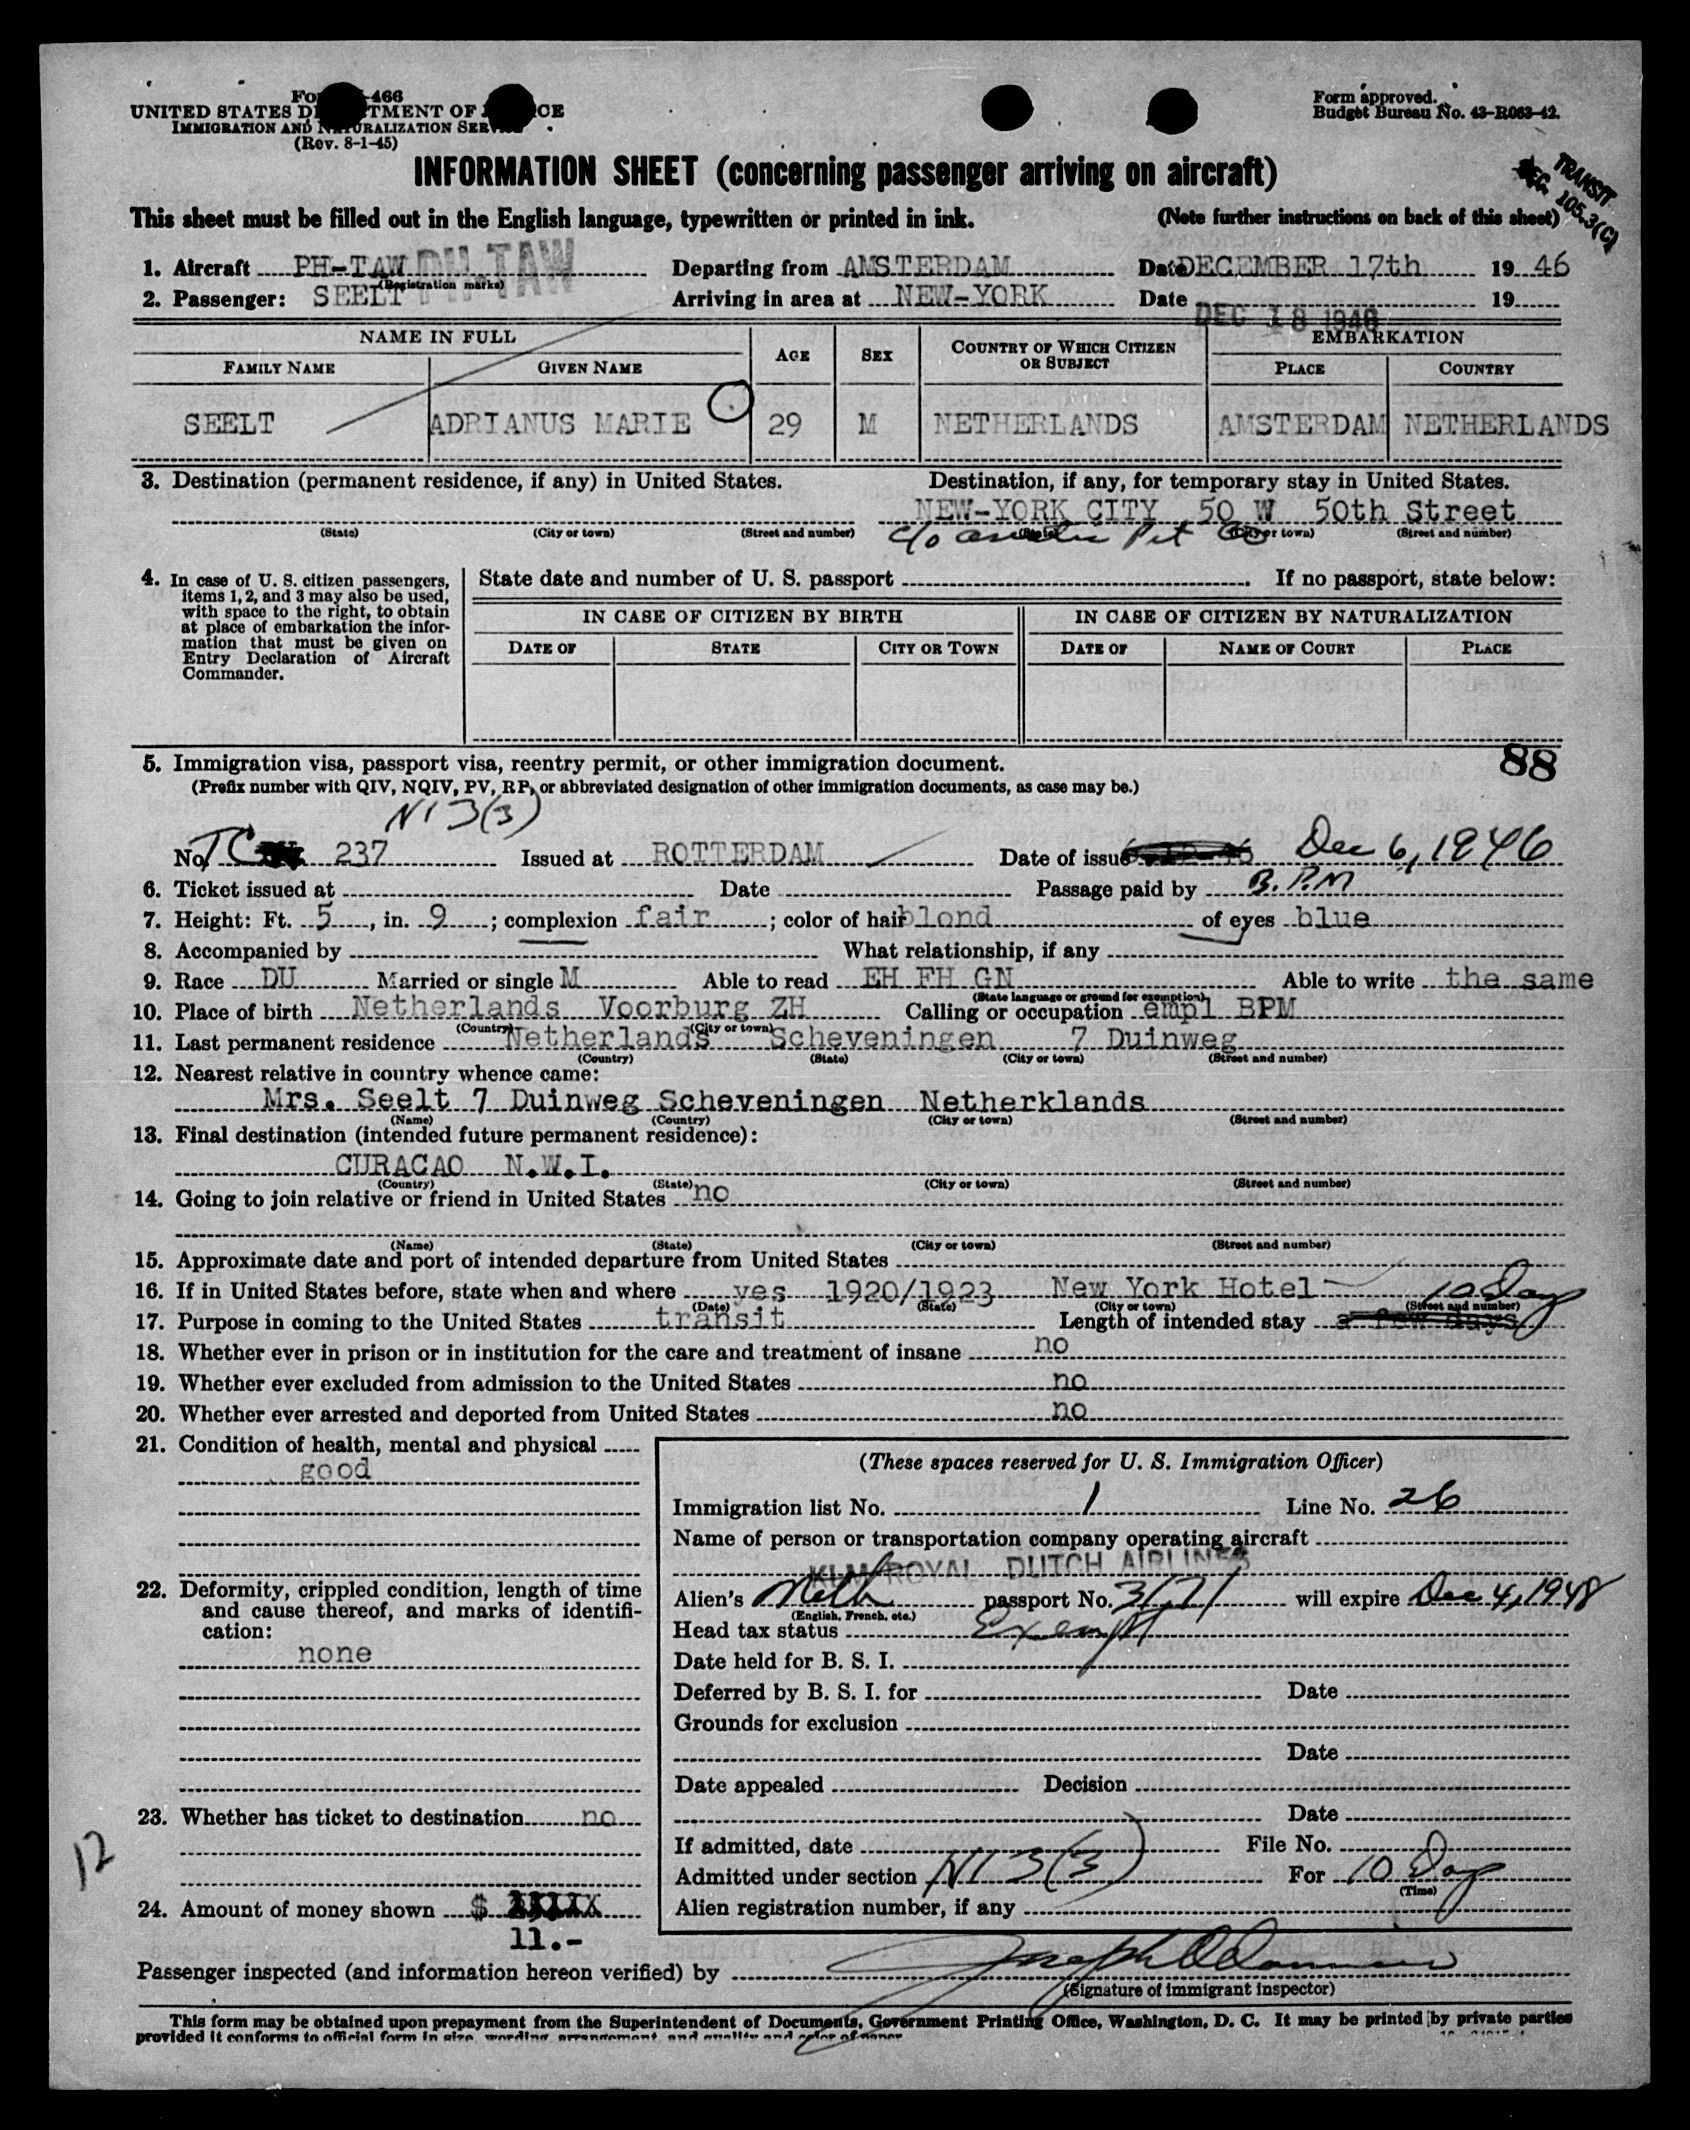 UNITED STATES DEPARTMENT OF JUSTICE
IMMIGRATION AND NATURALIZATION SERVICE
(Rev. 8-1-45)
Form approved.
Budget Bureau No. 43-R063-42.
INFORMATION SHEET (concerning passenger arriving on aircraft)
TRANSIT
SEC. 105.3(C)
This sheet must be filled out in the English language, typewritten or printed in ink. (Note further instructions on back of this sheet)
1. Aircraft PH-TAW PH-TAW Departing from AMSTERDAM Date DECEMBER 17th 19 46
(Registration marks)
2. Passenger: SEELT Arriving in area at NEW-YORK Date DEC 18 1946 19
NAME IN FULL AGE SEX COUNTRY OF WHICH CITIZEN OR SUBJECT EMBARKATION
FAMILY NAME GIVEN NAME PLACE COUNTRY
SEELT ADRIANUS MARIE 29 M NETHERLANDS AMSTERDAM NETHERLANDS
3. Destination (permanent residence, if any) in United States. Destination, if any, for temporary stay in United States.
NEW-YORK CITY 50 W 50th Street
(State) (City or town) (Street and number) (State) (City or town) (Street and number)
c/o Pet Co
4. In case of U. S. citizen passengers, items 1, 2, and 3 may also be used, with space to the right, to obtain at place of embarkation the information that must be given on Entry Declaration of Aircraft Commander.
State date and number of U. S. passport . If no passport, state below:
IN CASE OF CITIZEN BY BIRTH IN CASE OF CITIZEN BY NATURALIZATION
DATE OF STATE CITY OR TOWN DATE OF NAME OF COURT PLACE
88
5. Immigration visa, passport visa, reentry permit, or other immigration document.
(Prefix number with QIV, NQIV, PV, RP, or abbreviated designation of other immigration documents, as case may be.)
NI 3(3)
No. TC 237 Issued at ROTTERDAM Date of issue Dec 6, 1946
6. Ticket issued at Date Passage paid by B.P.M
7. Height: Ft. 5, in. 9; complexion fair; color of hair blond of eyes blue
8. Accompanied by What relationship, if any
9. Race DU Married or single M Able to read EH FH GN Able to write the same
(State language or ground for exemption)
10. Place of birth Netherlands Voorburg ZH Calling or occupation empl BPM
(Country) (City or town)
11. Last permanent residence Netherlands Scheveningen 7 Duinweg
(Country) (State) (City or town) (Street and number)
12. Nearest relative in country whence came:
Mrs. Seelt 7 Duinweg Scheveningen Netherklands
(Name) (Country) (City or town) (Street and number)
13. Final destination (intended future permanent residence):
CURACAO N.W.I.
(Country) (State) (City or town) (Street and number)
14. Going to join relative or friend in United States no
(Name) (State) (City or town) (Street and number)
15. Approximate date and port of intended departure from United States
16. If in United States before, state when and where yes 1920/1923 New York Hotel
(Date) (State) (City or town) (Street and number)
10 Day
17. Purpose in coming to the United States transit Length of intended stay a few days
18. Whether ever in prison or in institution for the care and treatment of insane no
19. Whether ever excluded from admission to the United States no
20. Whether ever arrested and deported from United States no
21. Condition of health, mental and physical
good
22. Deformity, crippled condition, length of time and cause thereof, and marks of identification:
none
23. Whether has ticket to destination no
12
24. Amount of money shown $
11.-
(These spaces reserved for U. S. Immigration Officer)
Immigration list No. 1 Line No. 26
Name of person or transportation company operating aircraft
KLM ROYAL DUTCH AIRLINES
Alien's Neth passport No. 3171 will expire Dec 4, 1948
(English, French, etc.)
Head tax status Exempt
Date held for B. S. I.
Deferred by B. S. I. for Date
Grounds for exclusion
Date
Date appealed Decision
Date
If admitted, date File No.
Admitted under section NI 3(3) For 10 Day
(Time)
Alien registration number, if any
Passenger inspected (and information hereon verified) by Joseph
(Signature of immigrant inspector)
This form may be obtained upon prepayment from the Superintendent of Documents, Government Printing Office, Washington, D. C. It may be printed by private parties
provided it conforms to official form in size, wording, arrangement, and quality and color of paper.